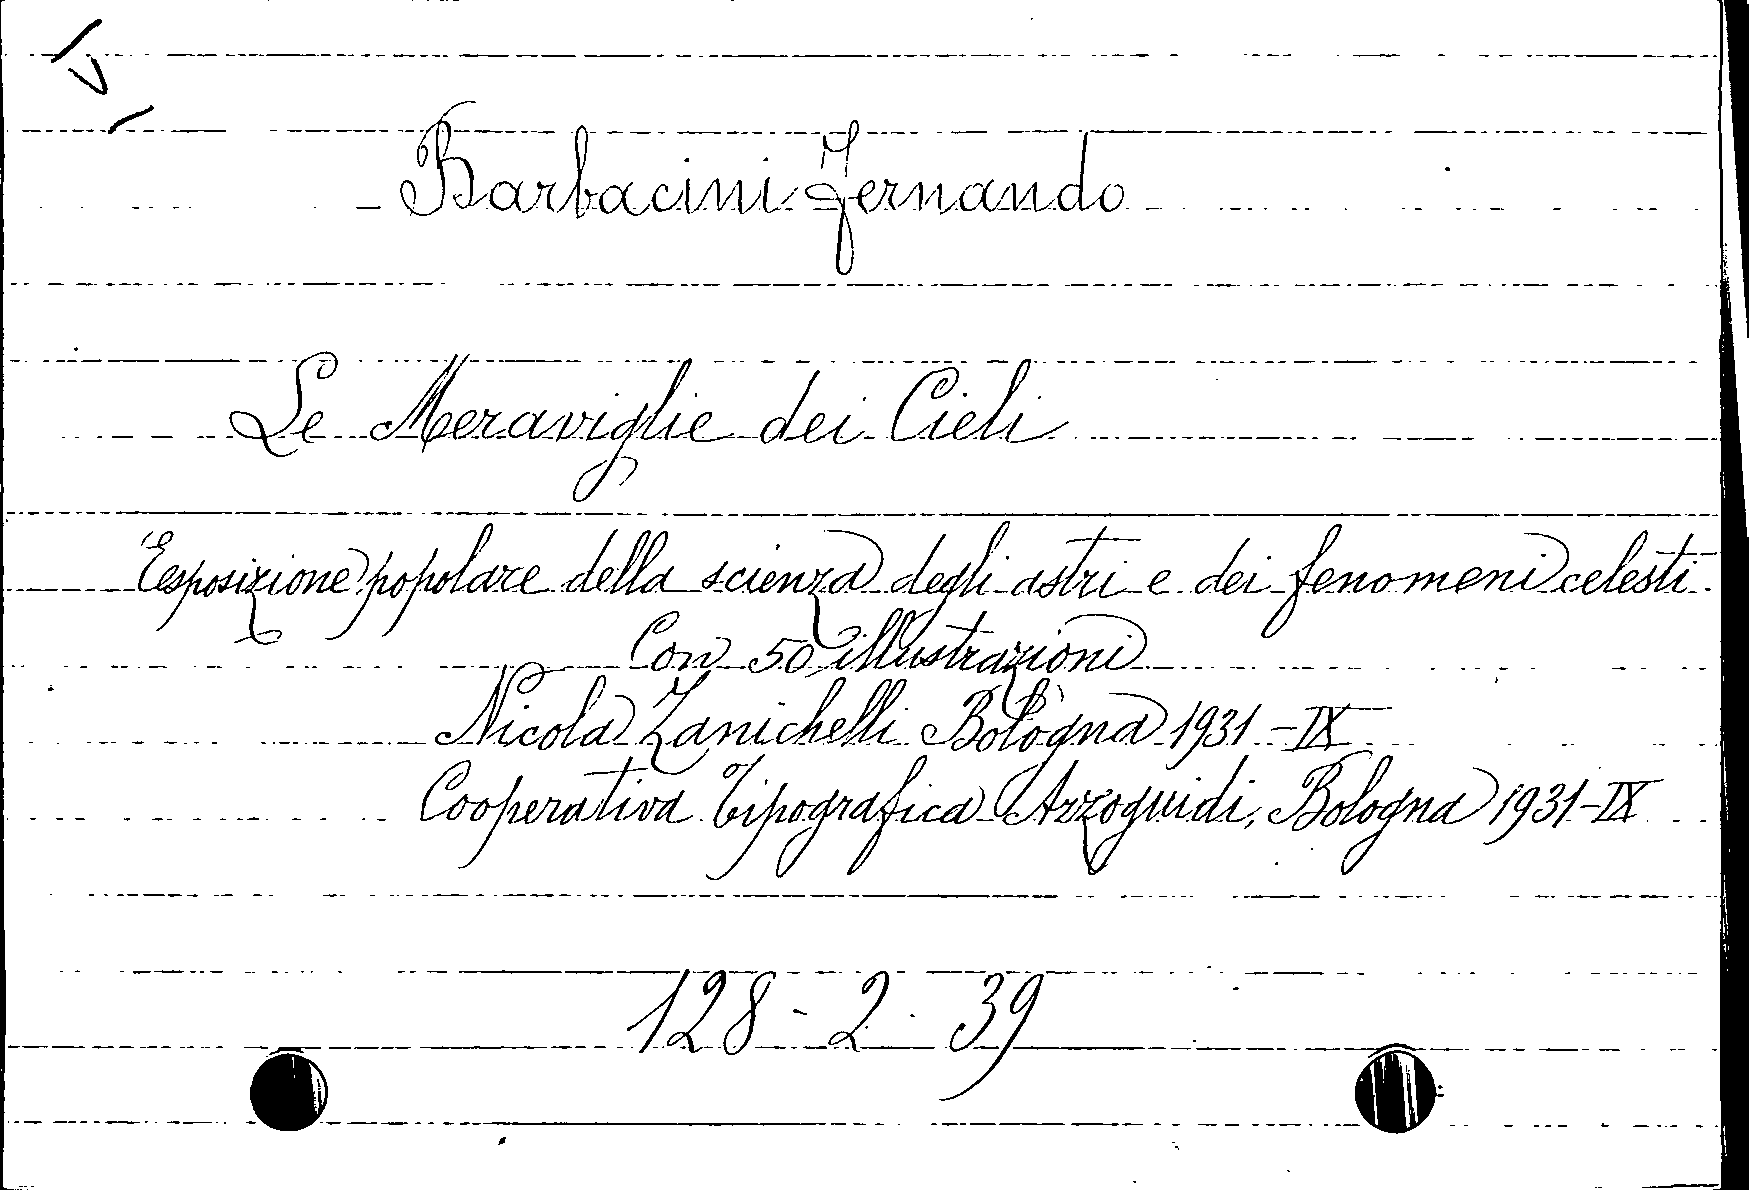 Barbacini Fernando
Le Meraviglie dei Cieli
Esposizione popolare della scienza degli astri e dei fenomeni celesti.
Con 50 illustrazioni
Nicola Zanichelli Bologna 1931 - IX
Cooperativa Tipografica Azzoguidi, Bologna 1931-IX
128 - 2 - 39